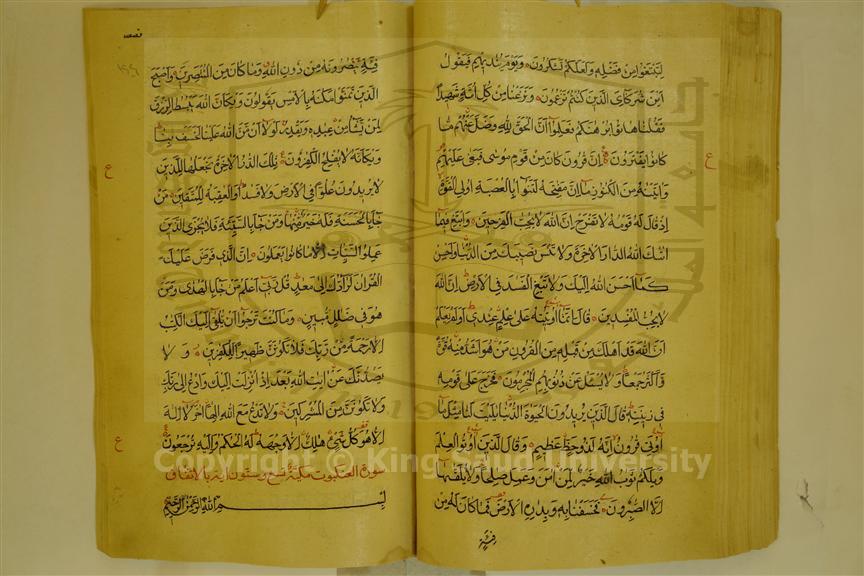 لتبتغوا من فضله ولعلكم تشكرون ويوم يناديهم فيقول
اين شركاءى الذين كنتم تزعمون ونزعنا من كل امة شهيدا
فقلنا هاتوا برهانكم فعلموا ان الحق لله وضل عنهم ما
كانوا يفترون ان قرون كان من قوم موسى فبغى عليهم
واتينه من الكنوز ما ان مفاتحه لتنوا بالعصبة اولى القوة
اذ قال له قومه لا تفرح ان الله لا يحب الفرحين وابتغ فيما
اتك الله الدار الاخرة ولا تنس نصيبك من الدنيا واحسن
كما احسن الله اليك ولا تبغ الفساد فى الارض ان الله
لا يحب المفسدين قال انما اوتيته على علم عندى اولم يعلم
ان الله قد اهلك من قبله من القرون من هو اشد منه قوة
واكثر جمعا ولا يسل عن ذنوبهم المجرمون فخرج على قومه
فى زينته قال الذين يريدون الحيوة الدنيا يليت لنا مثل ما
اوتى قرون انه لذو حظ عظيم وقال الذين اوتوا العلم
ويلكم ثواب الله خير لمن امن وعمل صلحا ولا يلقيها
الا الصبرون فخسفنا به وبداره الارض فما كان له من
ع
فئة ينصرونه من دون الله وما كان من المنتصرين واصبح
الذين تمنوا مكانه بالامس يقولون ويكان الله يبسط الرزق
لمن يشاء من عباده ويقدر لولا ان من الله علينا لخسف بنا
ويكانه لا يفلح الكفرون تلك الدار الاخرة نجعلها للذين
لا يريدون علوا فى الارض ولا فسادا والعاقبة للمتقين من
جاء بالحسنة فله خير منها ومن جاء بالسيئة فلا يجزى الذين
عملوا السيات الا ما كانوا يعملون ان الذى فرض عليك
القران لرادك الى معاد قل ربى اعلم من جاء بالهدى ومن
هو فى ضلل مبين وما كنت ترجوا ان يلقى اليك الكتب
الا رحمة من ربك فلا تكونن ظهيرا للكفرين ولا
يصدنك عن ايت الله بعد اذ انزلت اليك وادع الى ربك
ولا تكونن من المشركين ولا تدع مع الله الها اخر لا اله
الا هو كل شئ هالك الا وجهه له الحكم واليه ترجعون
سورة العنكبوت مكية تسع وستون اية بالاتفاق
بسم الله الرحمن الرحيم
ع
ع
Copyright © King Saud University